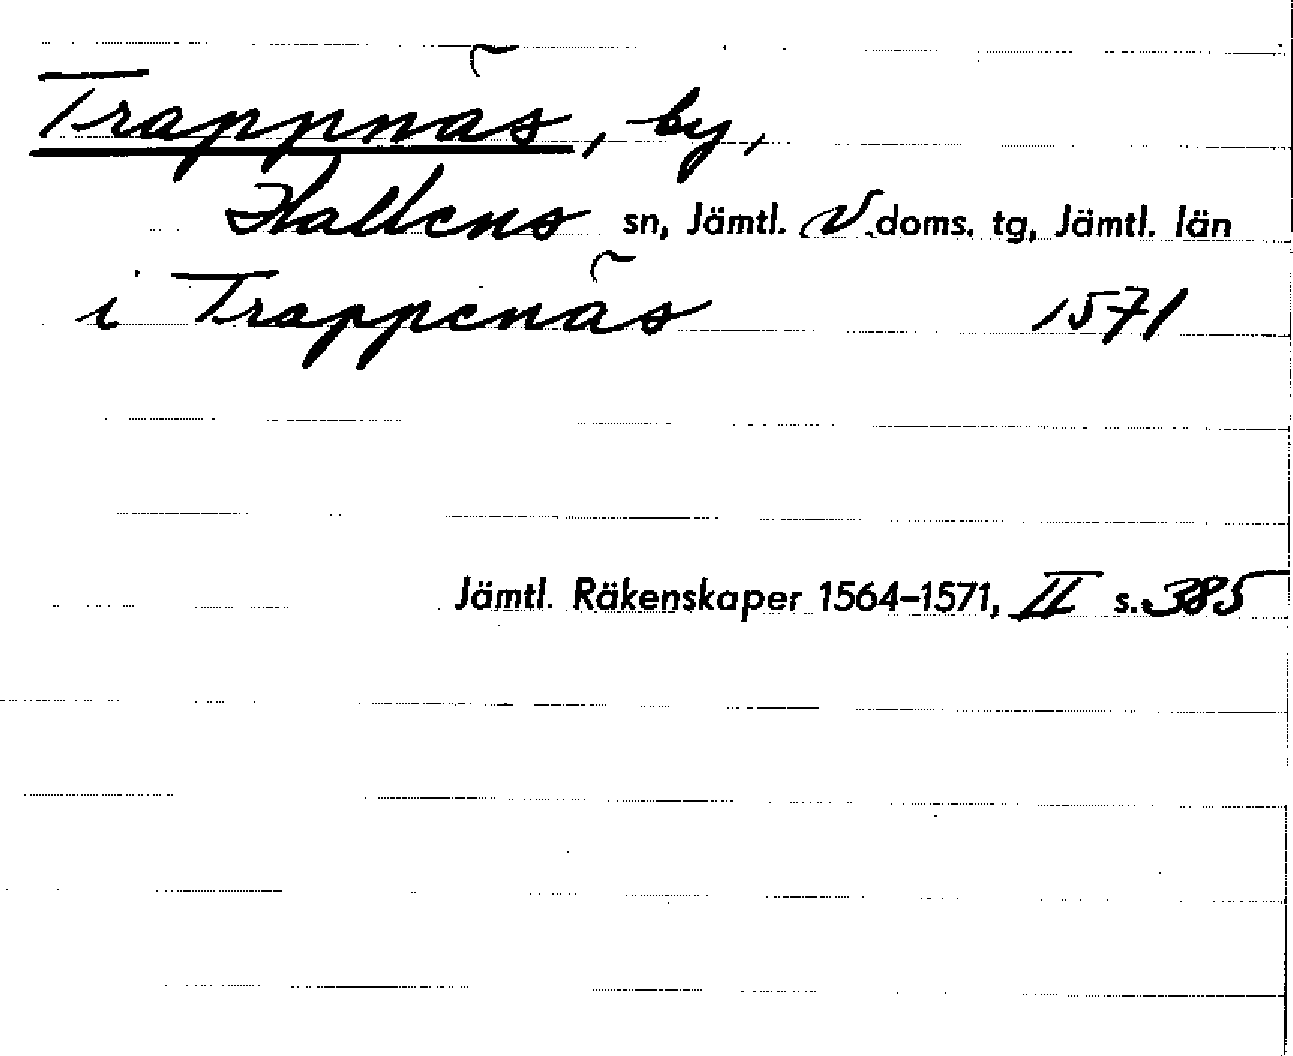 Trappnäs, by,
Hallens sn, Jämtl. V. doms. tg, Jämtl. län
i Trappenäs 1571
Jämtl. Räkenskaper 1564–1571, II s. 385